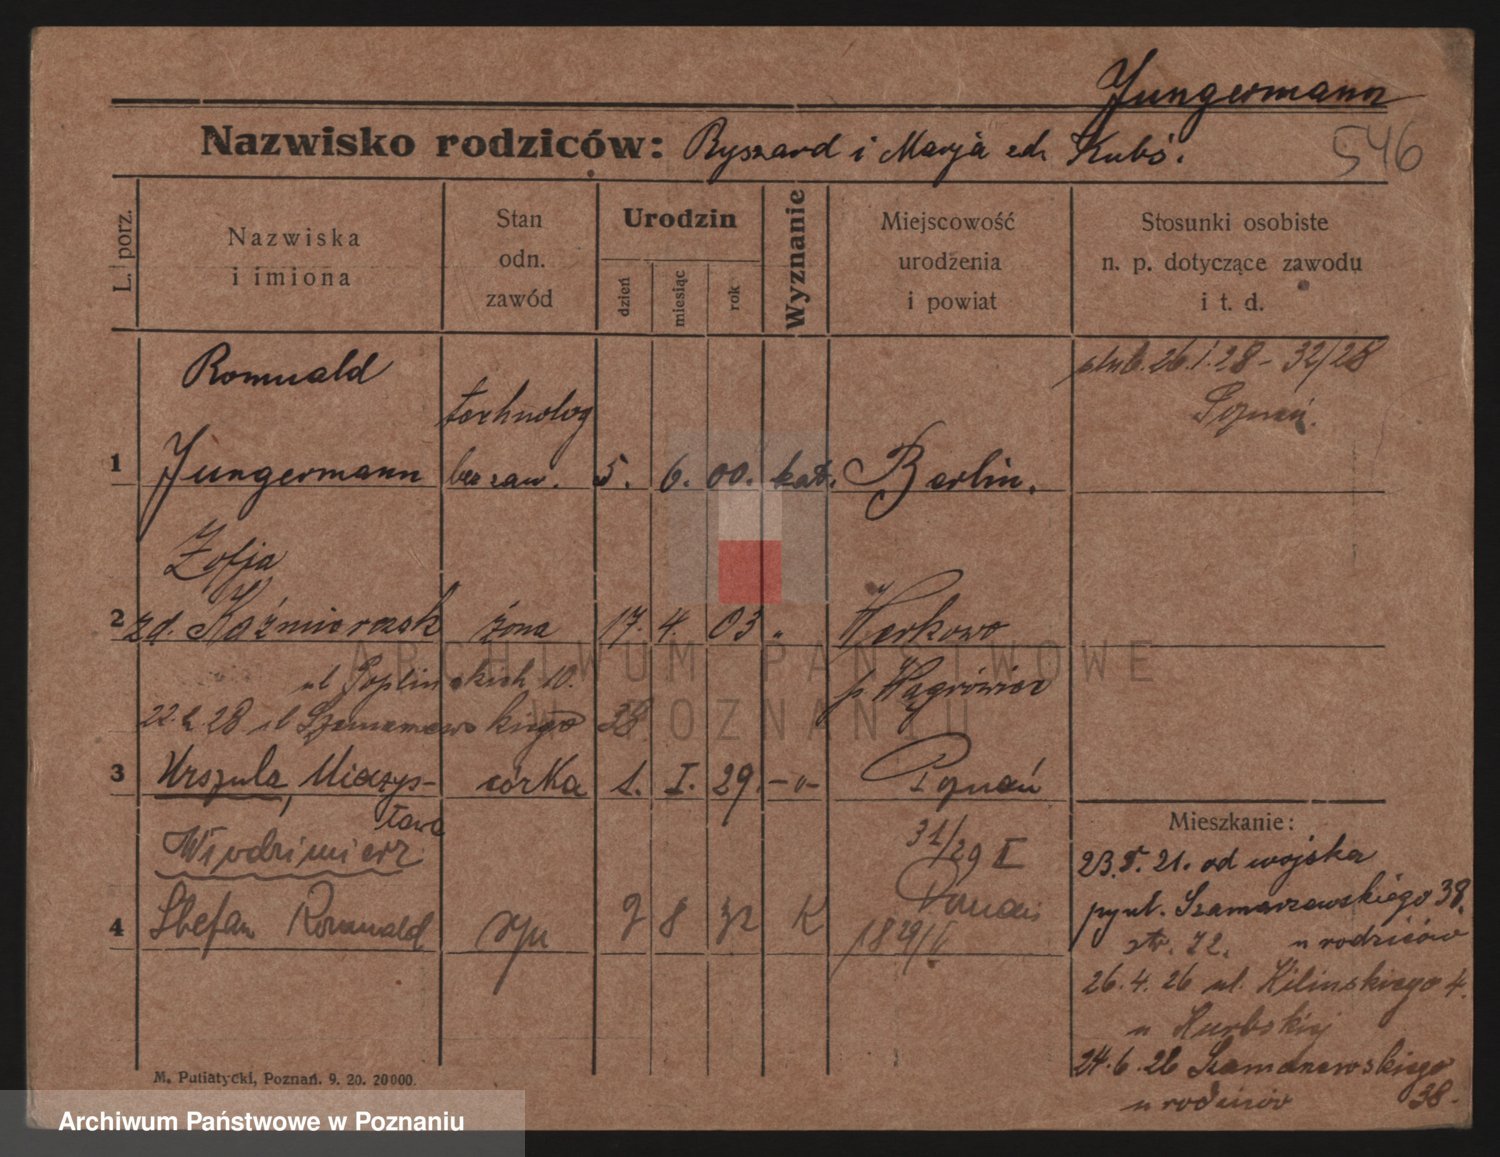 Jungermann
Nazwisko rodziców: Ryszard i Marja zd. Kubś.
546
L. porz.
Nazwiska
i imiona
Stan
odn.
zawód
Urodzin
dzień
miesiąc
rok
Wyznanie
Miejscowość
urodzenia
i powiat
Stosunki osobiste
n. p. dotyczące zawodu
i t. d.
ślub. 26.1.28 - 32/28
Poznań.
Romuald
technolog
1 Jungermann bez zaw. 5. 6. 00. kat. Berlin.
Zofja
2 zd. Kaźmierczak żona 17. 4. 03 " Werkowo
p. Wągrówiec
ul Poplińskich 10.
22. 2 28 ul Szamarzewskiego 38
3 Urszula, Mieczys- córka 1. I. 29. -"- Poznań
ława
31/29 I
Włodzimierz
Poznań
4 Stefan Romuald syn 9 8 32 K
1829/
Mieszkanie:
23.5. 21. od wojska
ul. Szamarzewskiego 38.
str. 72. u rodziców
26. 4. 26 ul. Kilinskiego 4.
u Kurbskiej
24. 6. 26 Szamarzewskiego
u rodziców 38.
M. Putiatycki, Poznań. 9. 20. 20000.
ARCHIWUM PAŃSTWOWE
W POZNANIU
Archiwum Państwowe w Poznaniu